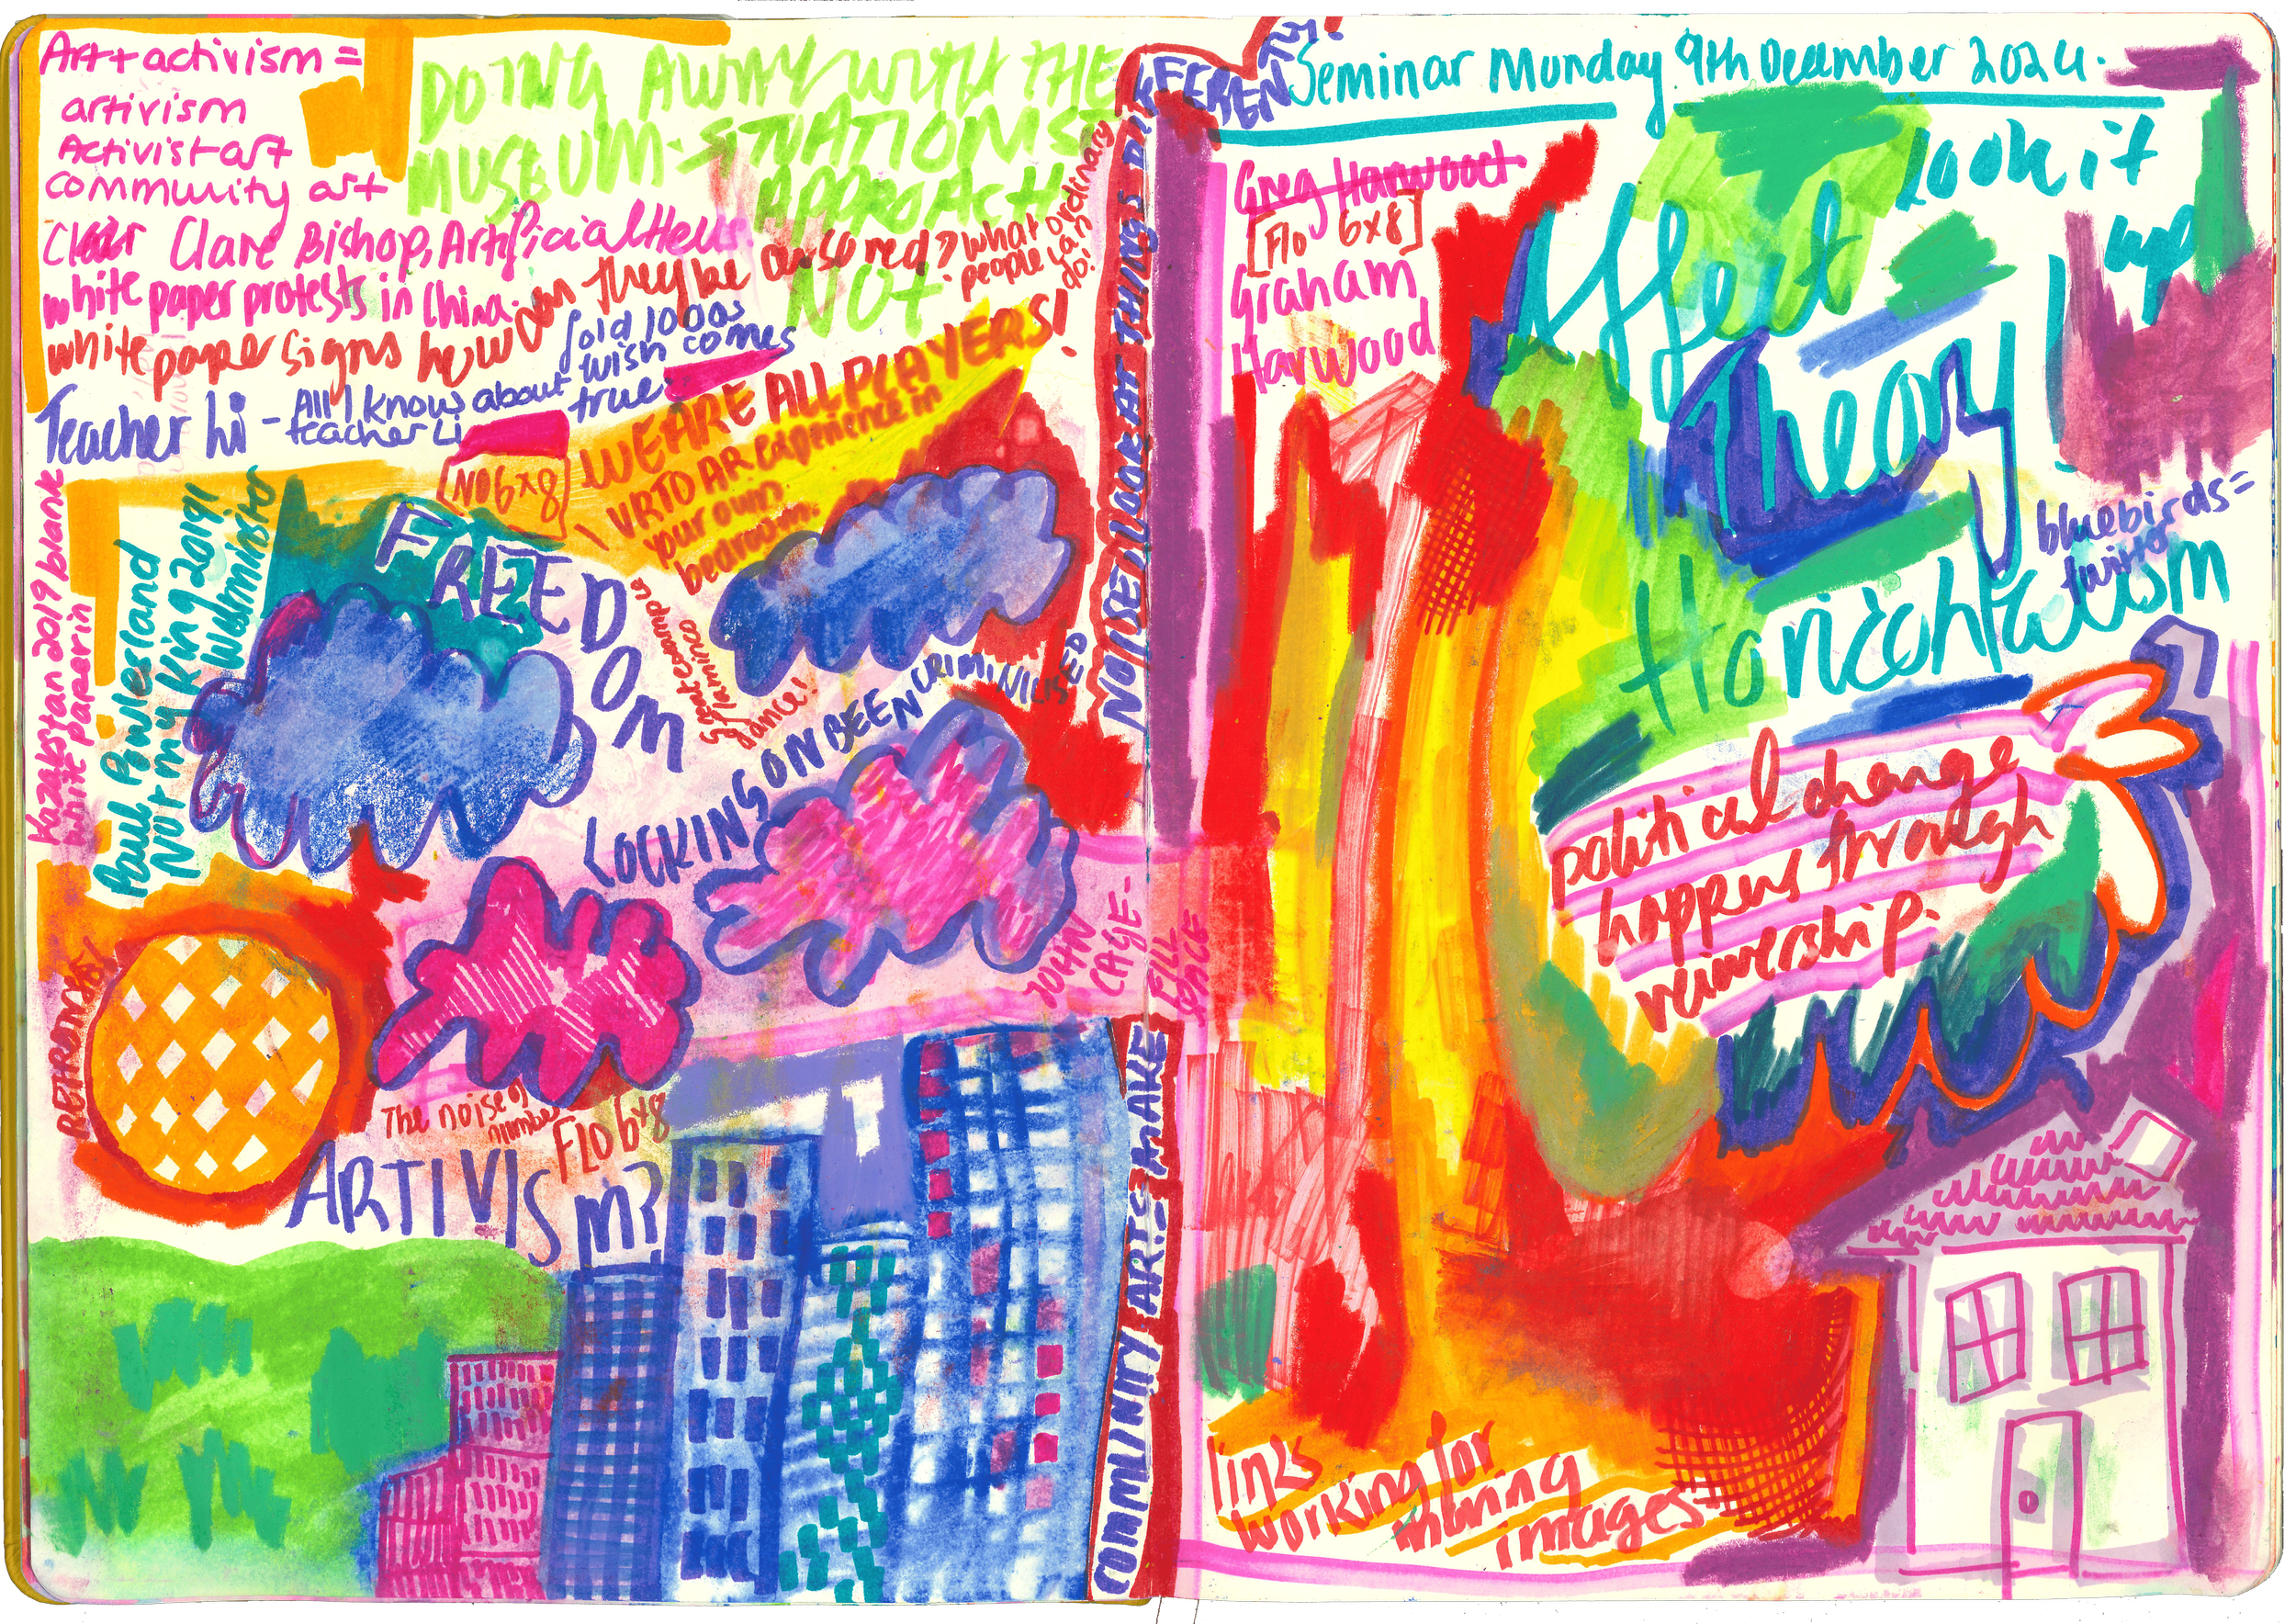 Art + activism =
artivism
Activist art
community art
Clare Bishop, Artificial Hells
white paper protests in China.
white paper signs how can they be censored? what ordinary
people can
do!
DOING AWAY WITH THE
MUSEUM - SITUATIONIST
APPROACH
NOT
Teacher Li - All I know about
teacher Li
fold 1000s
wish comes
true
NO 6x8
WE ARE ALL PLAYERS!
VR TO AR experience in
your own
bedroom.
Kazakstan 2019 blank
white paper in
Paul Powlesland
Not my King 2019!
Wesminster
FREEDOM
great example
of flaminco
dance!
LOCKINGS ON BEEN CRIMINILISED
JOHN
CAGE -
FILL
SPACE
RETROTMSABS
The noise of
number
FLO 6x8
ARTIVISM?
COMMUNITY ARTS - MAKE
NOISE! LOOK AT THINGS DIFFERENTLY!
Seminar Munday 9th December 2024.
Greg Harwood
[Flo 6x8]
Graham
Harwood
Affect
Theory
Look it
up
bluebirds =
twitter
Horizontalism
political change
happens through
veiwership.
links
working for
moving
images